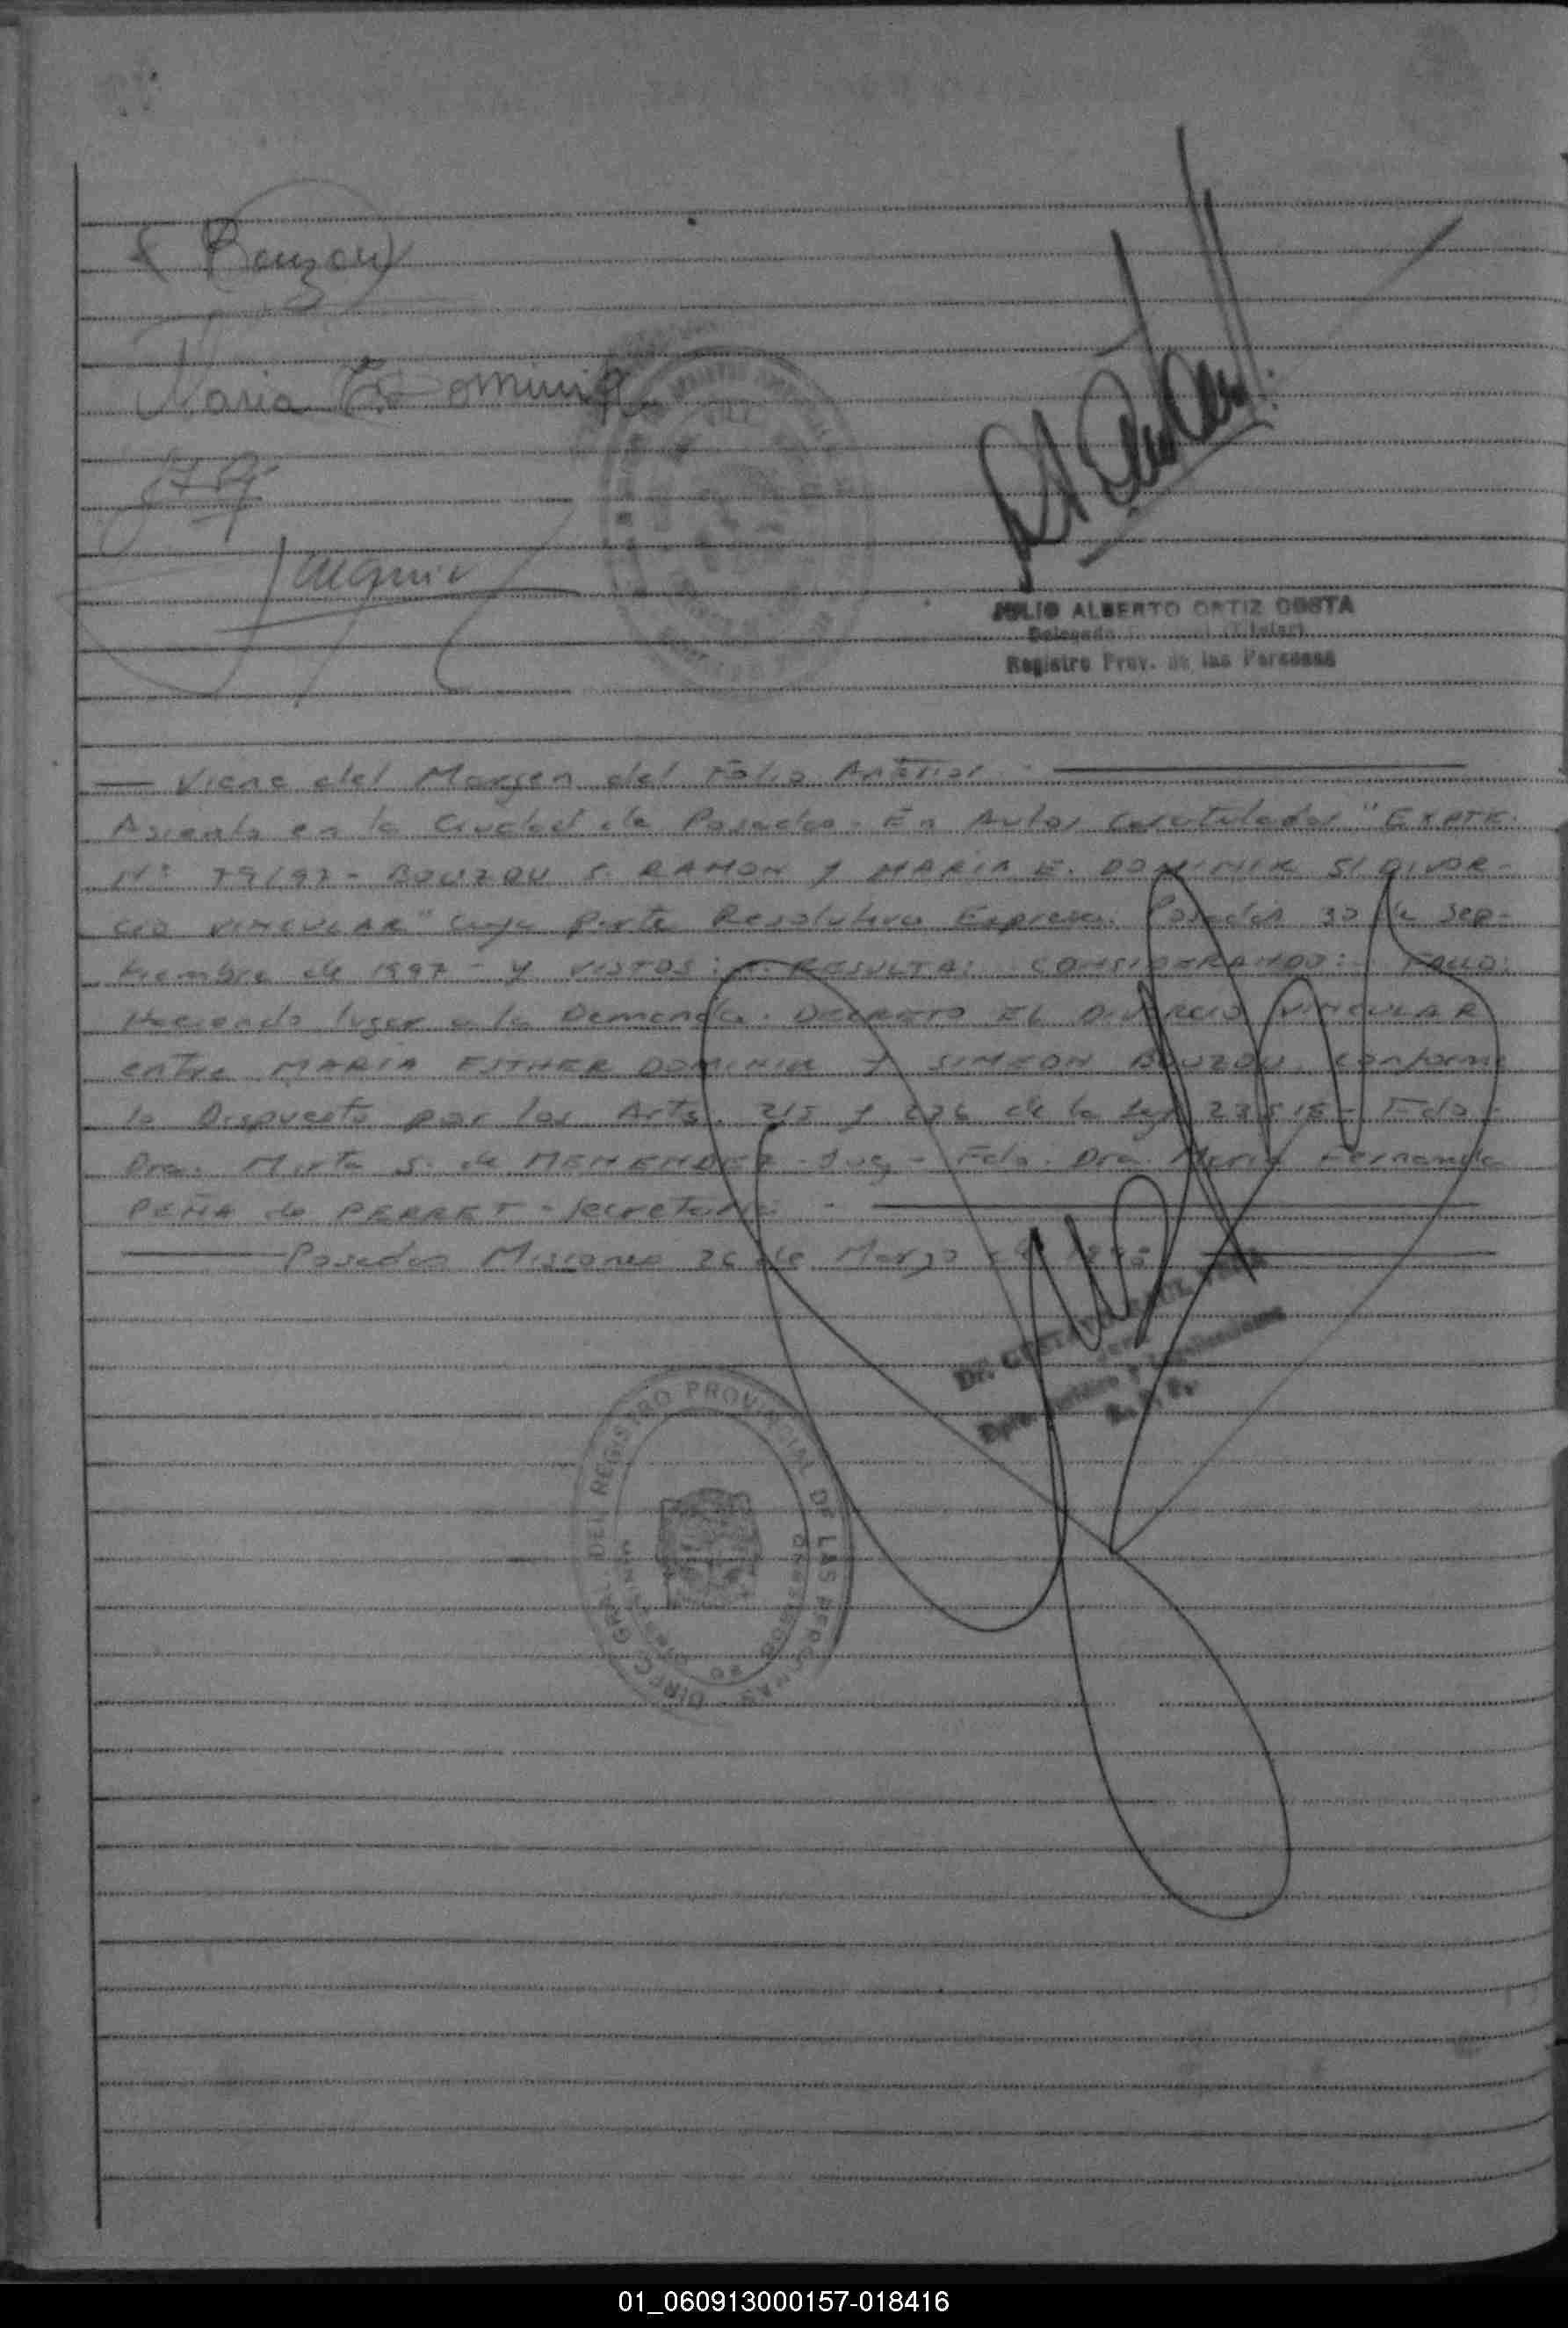 S Bouzou
Maria E. Dominik
JULIO ALBERTO ORTIZ COSTA
Delegado (Titular)
Registro Prov. de las Personas
— Viene del Margen del Folio Anterior. —
Asiento en la Ciudad de Posadas. En Autos Caratulados "EXPTE.
Nº 79/97 - BOUZOU S. RAMON Y MARIA E. DOMINIK S/ DIVOR-
CIO VINCULAR" cuya parte Resolutiva Expresa. Posadas 30 de Sep-
tiembre de 1997 - Y VISTOS: RESULTA: CONSIDERANDO: FALLO:
Haciendo lugar a la Demanda. DECRETO EL DIVORCIO VINCULAR
entre MARIA ESTHER DOMINIK Y SIMEON BOUZOU, conforme
lo Dispuesto por los Arts. 215 y 236 de la Ley 23515 - Fdo -
Dra. Mirta S. de MENENDEZ - Juez - Fdo. Dra. Maria Fernanda
PEÑA de PERRET - Secretaria. —
— Posadas Misiones 26 de Marzo de —
Dr.
Dpto. Jurídico y
DIREC. GRAL. DEL REGISTRO PROVINCIAL DE LAS PERSONAS
01_060913000157-018416